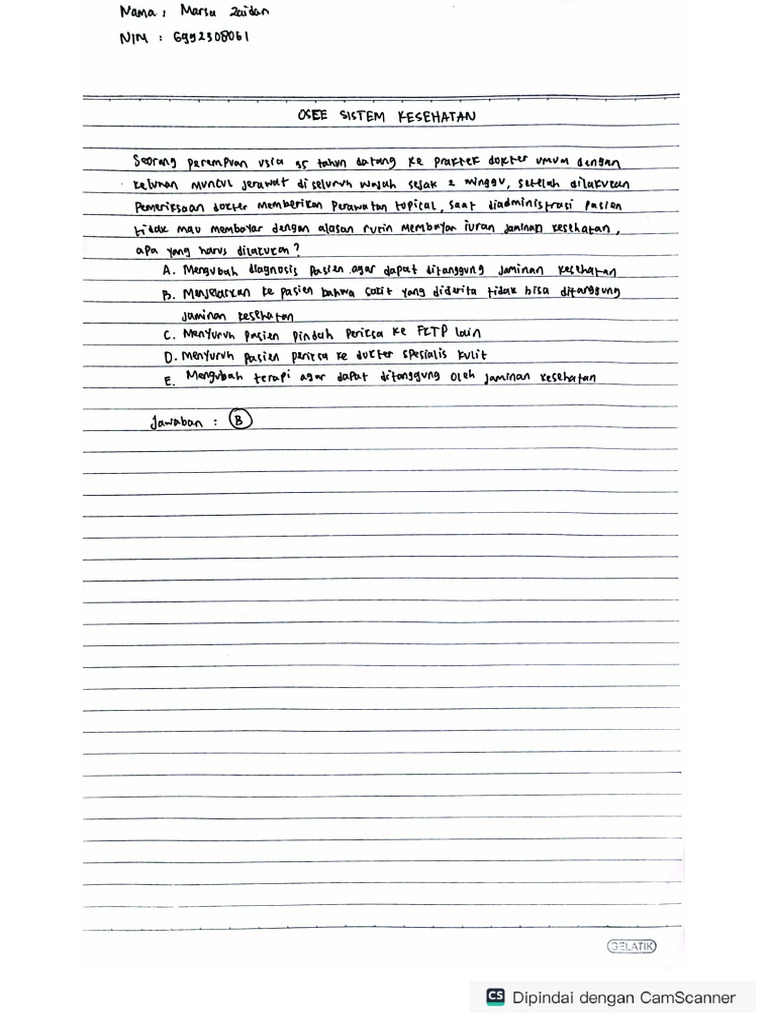 Nama : Marsa Zaidan
NIM : 6992308061
OSEE SISTEM KESEHATAN
Seorang perempuan usia 35 tahun datang ke praktek dokter umum dengan
keluhan muncul jerawat di seluruh wajah sejak 2 minggu, setelah dilakukan
Pemeriksaan dokter memberikan perawatan topical, saat diadministrasi pasien
tidak mau membayar dengan alasan rutin membayar iuran jaminan kesehatan,
apa yang harus dilakukan?
A. Mengubah diagnosis pasien agar dapat ditanggung jaminan kesehatan
B. Menjelaskan ke pasien bahwa sakit yang diderita tidak bisa ditanggung
jaminan kesehatan
C. Menyuruh pasien pindah periksa ke FKTP lain
D. Menyuruh pasien periksa ke dokter spesialis kulit
E. Mengubah terapi agar dapat ditanggung oleh jaminan kesehatan
Jawaban : B
GELATIK
CS Dipindai dengan CamScanner